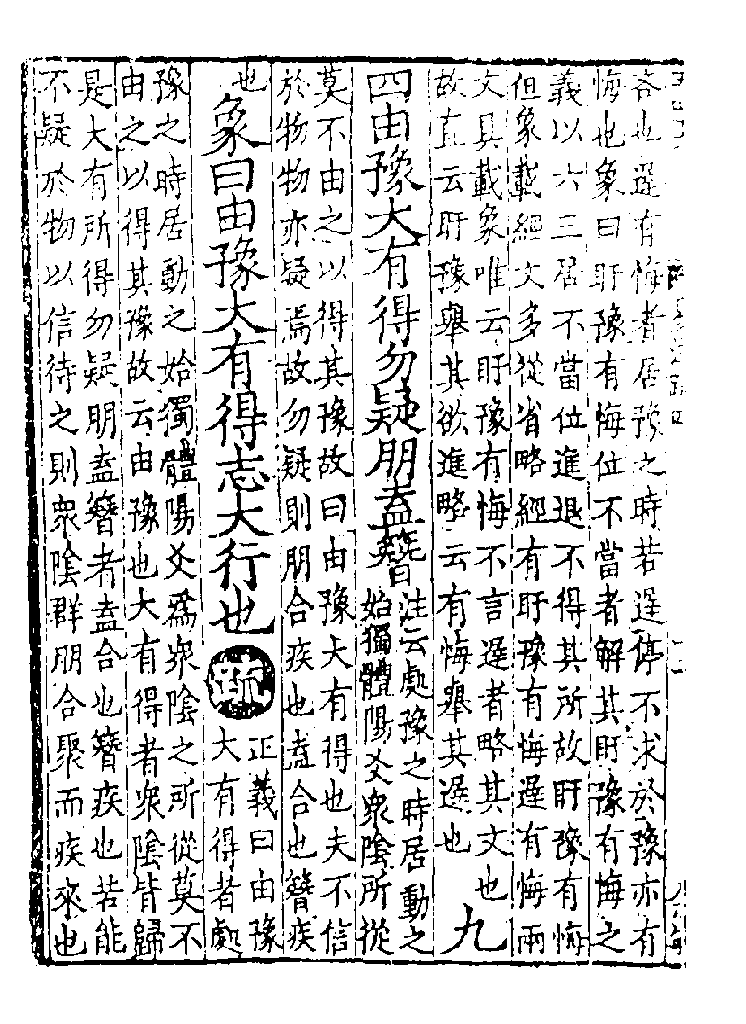 吝也遲有悔者居豫之時若遲停不求於豫亦有
悔也象曰盱豫有悔位不當者解其盱豫有悔之
義以六三居不當位進退不得其所故盱豫有悔
但象載經文多從省略經有盱豫有悔遲有悔兩
文具載象唯云盱豫有悔不言遲者略其文也
故直云盱豫舉其欲進略云有悔舉其遲也
九
四由豫大有得勿疑朋盍簪
注云處豫之時居動之
始獨體陽爻衆陰所從
莫不由之以得其豫故曰由豫大有得也夫不信
於物物亦疑焉故勿疑則朋合疾也盍合也簪疾
也
象曰由豫大有得志大行也
疏
正義曰由豫
大有得者處
豫之時居動之始獨體陽爻爲衆陰之所從莫不
由之以得其豫故云由豫也大有得者衆陰皆歸
是大有所得勿疑朋盍簪者盍合也簪疾也若能
不疑於物以信待之則衆陰群朋合聚而疾來也